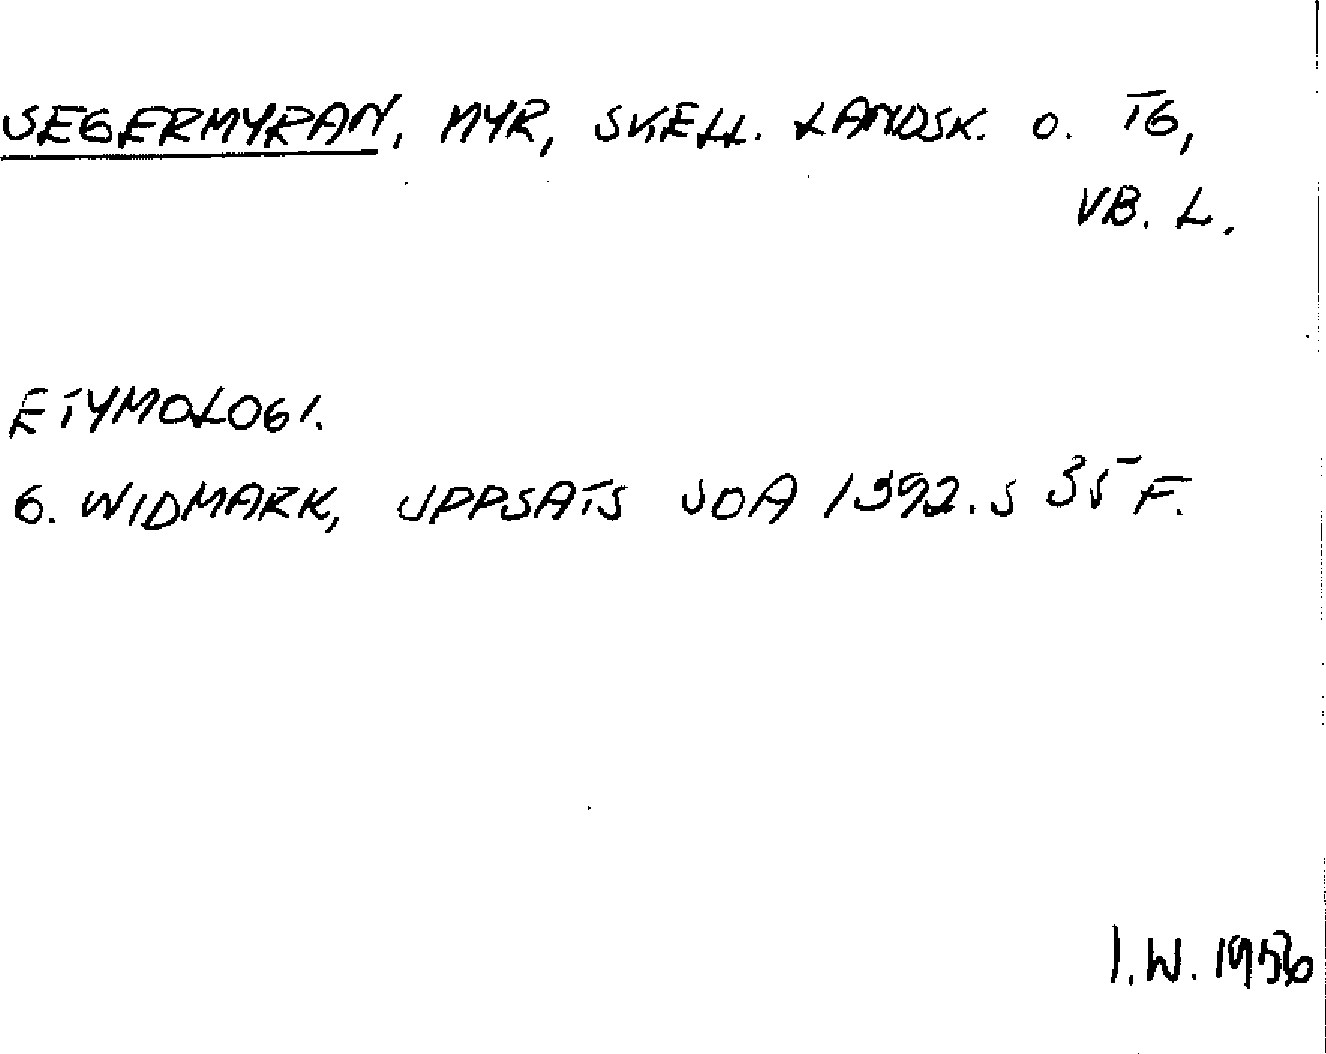 SEGERMYRAN, MYR, SKELL. LANDSK. O. TG,
VB. L.
ETYMOLOGI.
G. WIDMARK, UPPSATS SOA 1392. S 35 F.
I.W. 1956